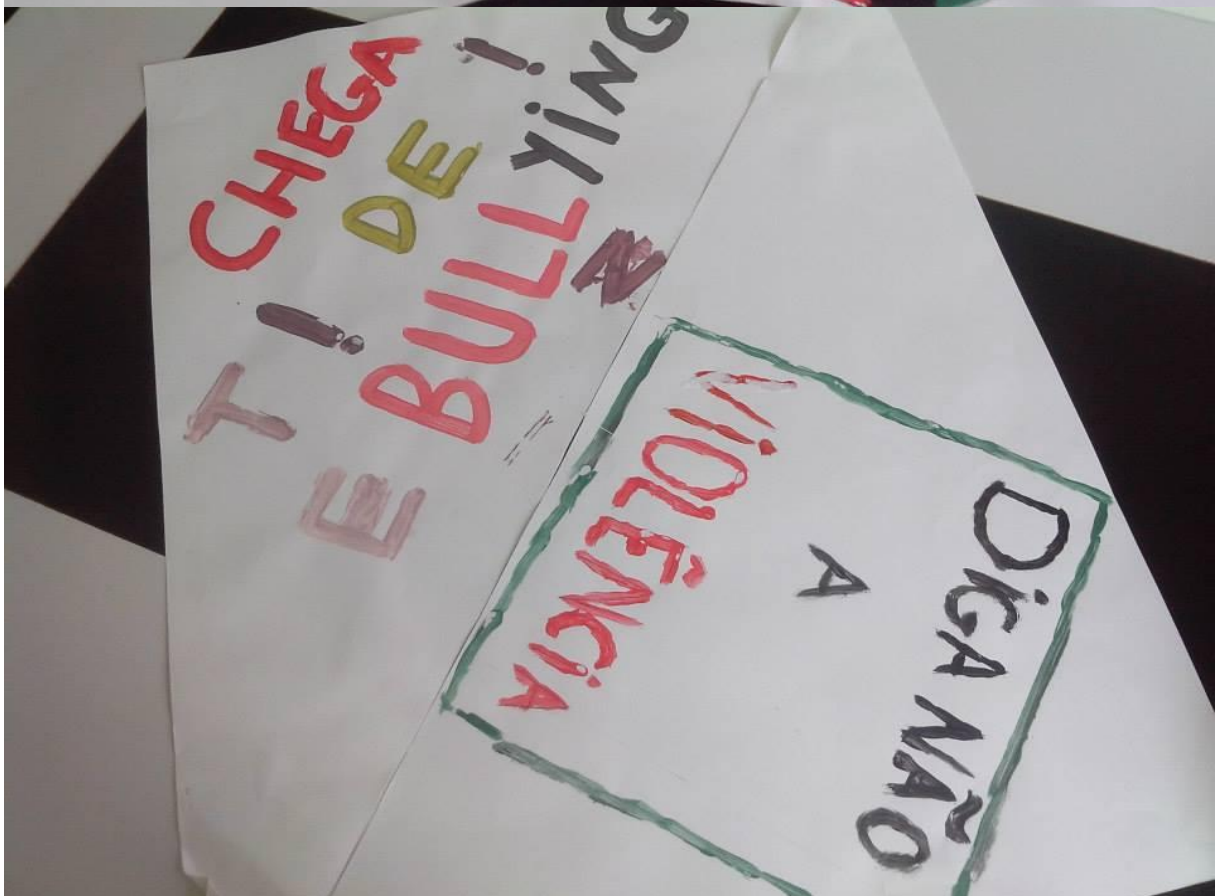 CHEGA !
DE
BULLYING
T ! N
E
DIGA NÃO
A
VIOLÊNCIA